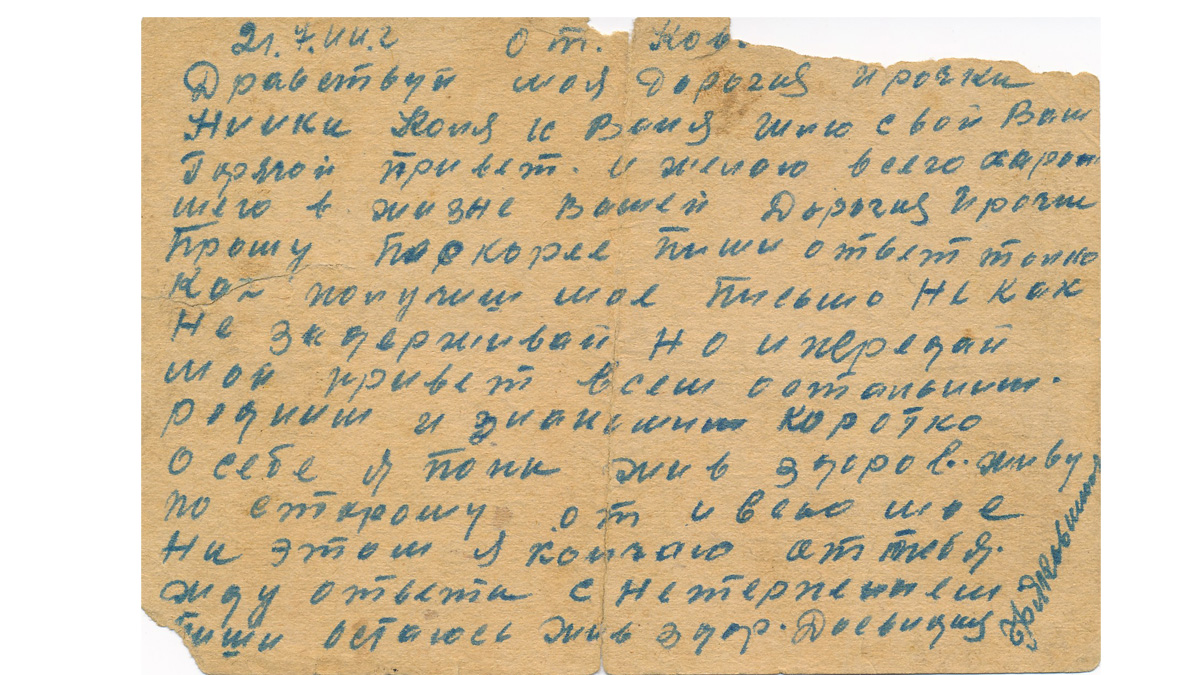 21.7.44.г От. Ков.
Дравствуй моя Дорогая Ирочка
Нинка Коля и Ваня шлю свой Вам
Горячой привет. и желаю всего харош
шего в жизне вашей Дорогая Ирочка
Прошу Поскорее пиши ответ толко
как получиш мое Письмо Не как
не задерживай Но и передай
мой привет всем остальным.
родным и знакомым коротко
о себе я пока жив здоров. живу
по старому от и всио мое
На этом я кончаю от тебя.
жду ответа с нетерпением
Пиши остаюсь жив здор. Досвидая